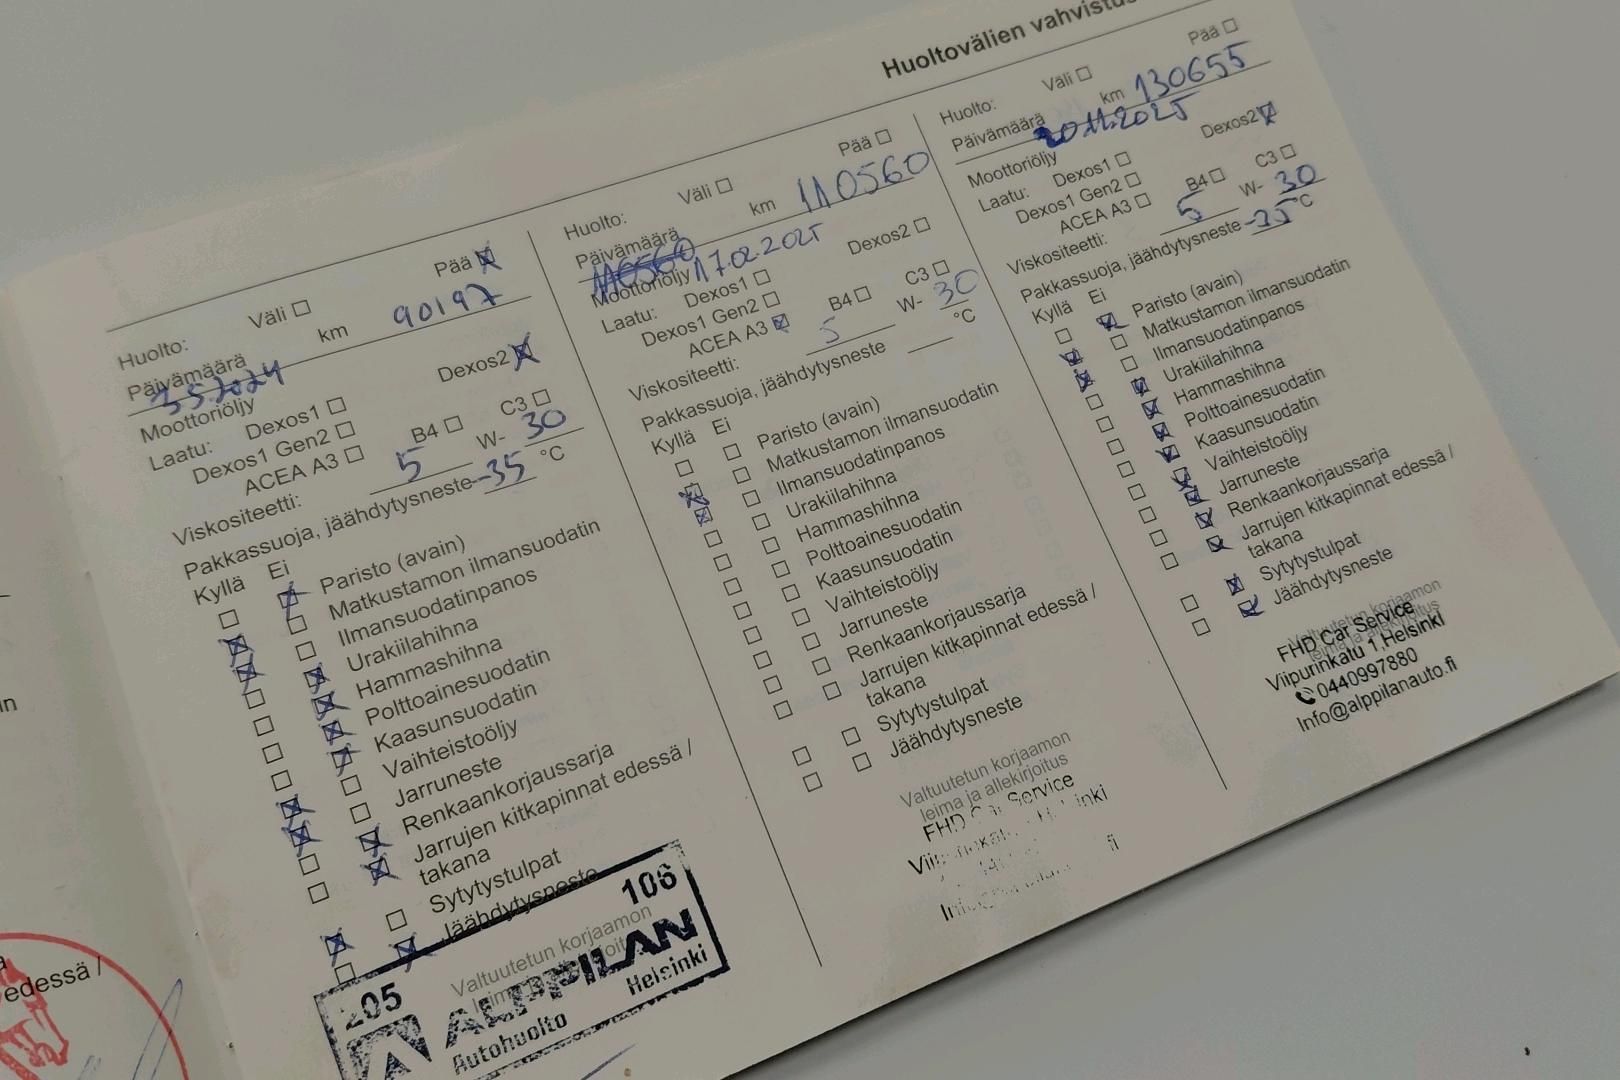 Huoltovälien vahvistus
Huolto: Väli Pää
Päivämäärä km 90197
3.5.2024
Moottoriöljy
Laatu: Dexos1 Dexos2
Dexos1 Gen2
ACEA A3 B4 C3
Viskositeetti: 5 W- 30
Pakkassuoja, jäähdytysneste -35 °C
Kyllä Ei
Paristo (avain)
Matkustamon ilmansuodatin
Ilmansuodatinpanos
Urakiilahihna
Hammashihna
Polttoainesuodatin
Kaasunsuodatin
Vaihteistoöljy
Jarruneste
Renkaankorjaussarja
Jarrujen kitkapinnat edessä /
takana
Sytytystulpat
Jäähdytysneste
Valtuutetun korjaamon
205 106
ALPPILAN
Autohuolto Helsinki
Huolto: Väli Pää
Päivämäärä km 110560
110560 17.02.2025
Moottoriöljy
Laatu: Dexos1 Dexos2
Dexos1 Gen2
ACEA A3 B4 C3
Viskositeetti: 5 W- 30
Pakkassuoja, jäähdytysneste °C
Kyllä Ei
Paristo (avain)
Matkustamon ilmansuodatin
Ilmansuodatinpanos
Urakiilahihna
Hammashihna
Polttoainesuodatin
Kaasunsuodatin
Vaihteistoöljy
Jarruneste
Renkaankorjaussarja
Jarrujen kitkapinnat edessä /
takana
Sytytystulpat
Jäähdytysneste
Valtuutetun korjaamon
leima ja allekirjoitus
FHD Car Service
Huolto: Väli Pää
Päivämäärä km 130655
20.11.2025
Moottoriöljy
Laatu: Dexos1 Dexos2
Dexos1 Gen2
ACEA A3 B4 C3
Viskositeetti: 5 W- 30
Pakkassuoja, jäähdytysneste -25 °C
Kyllä Ei
Paristo (avain)
Matkustamon ilmansuodatin
Ilmansuodatinpanos
Urakiilahihna
Hammashihna
Polttoainesuodatin
Kaasunsuodatin
Vaihteistoöljy
Jarruneste
Renkaankorjaussarja
Jarrujen kitkapinnat edessä /
takana
Sytytystulpat
Jäähdytysneste
Valtuutetun korjaamon
leima ja allekirjoitus
FHD Car Service
Viipurinkatu 1,Helsinki
0440997880
Info@alppilanauto.fi
edessä /